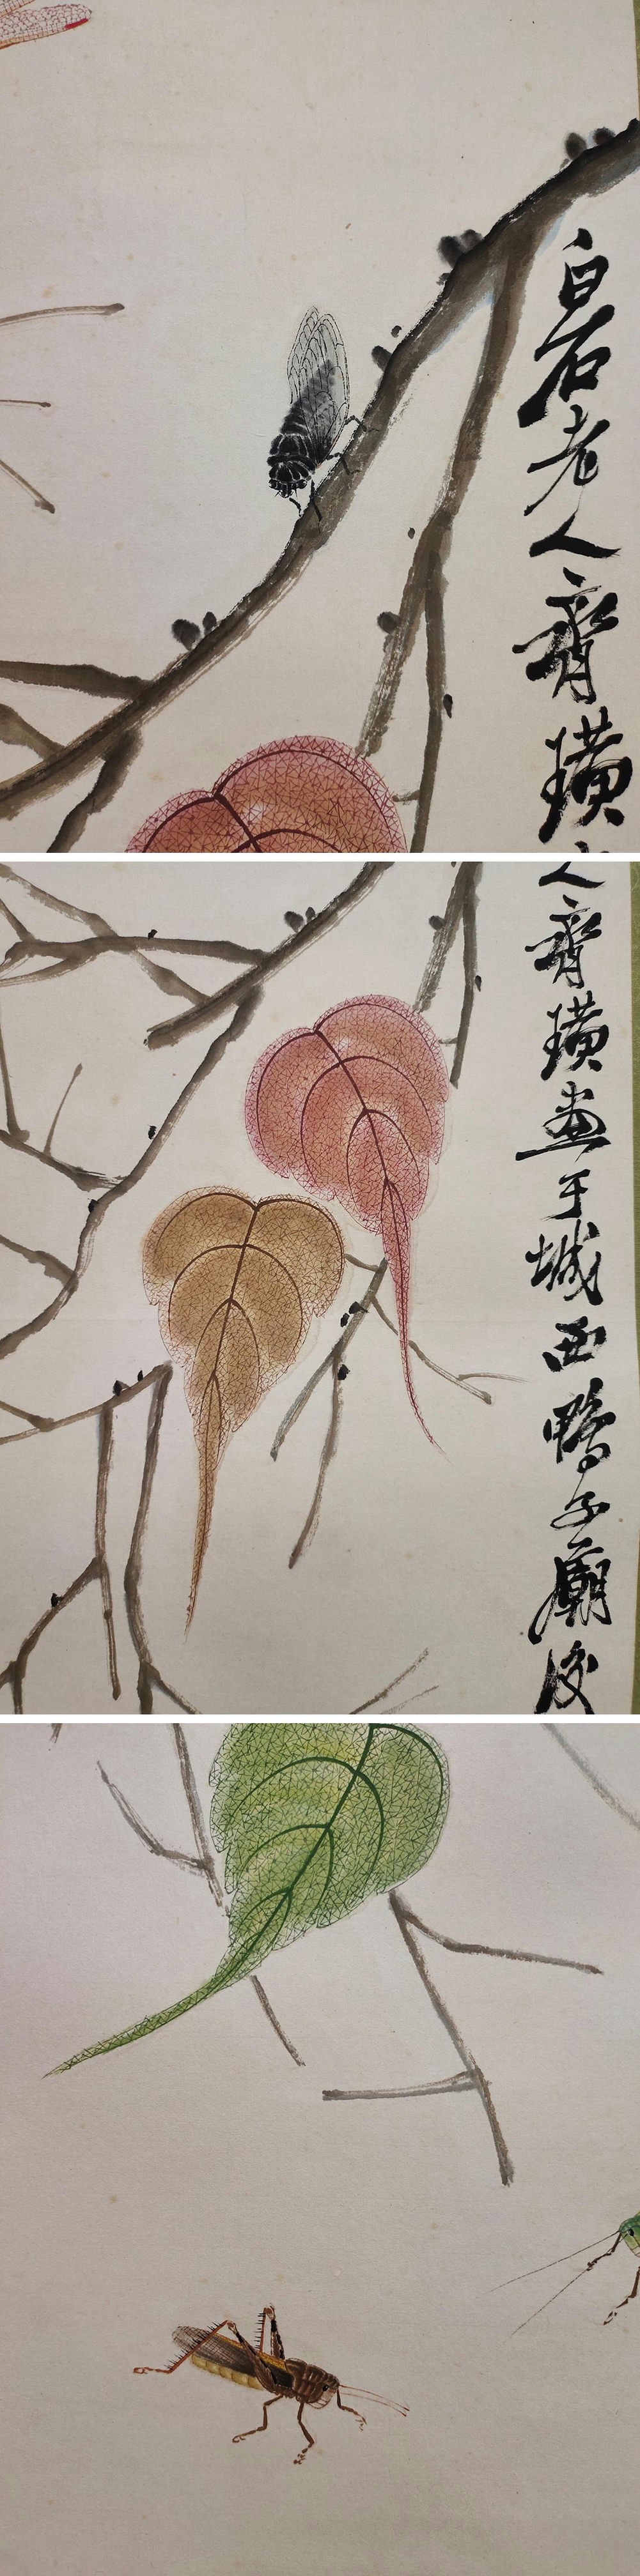 白石老人齊璜
人齊璜畫于城西鴨子廟後